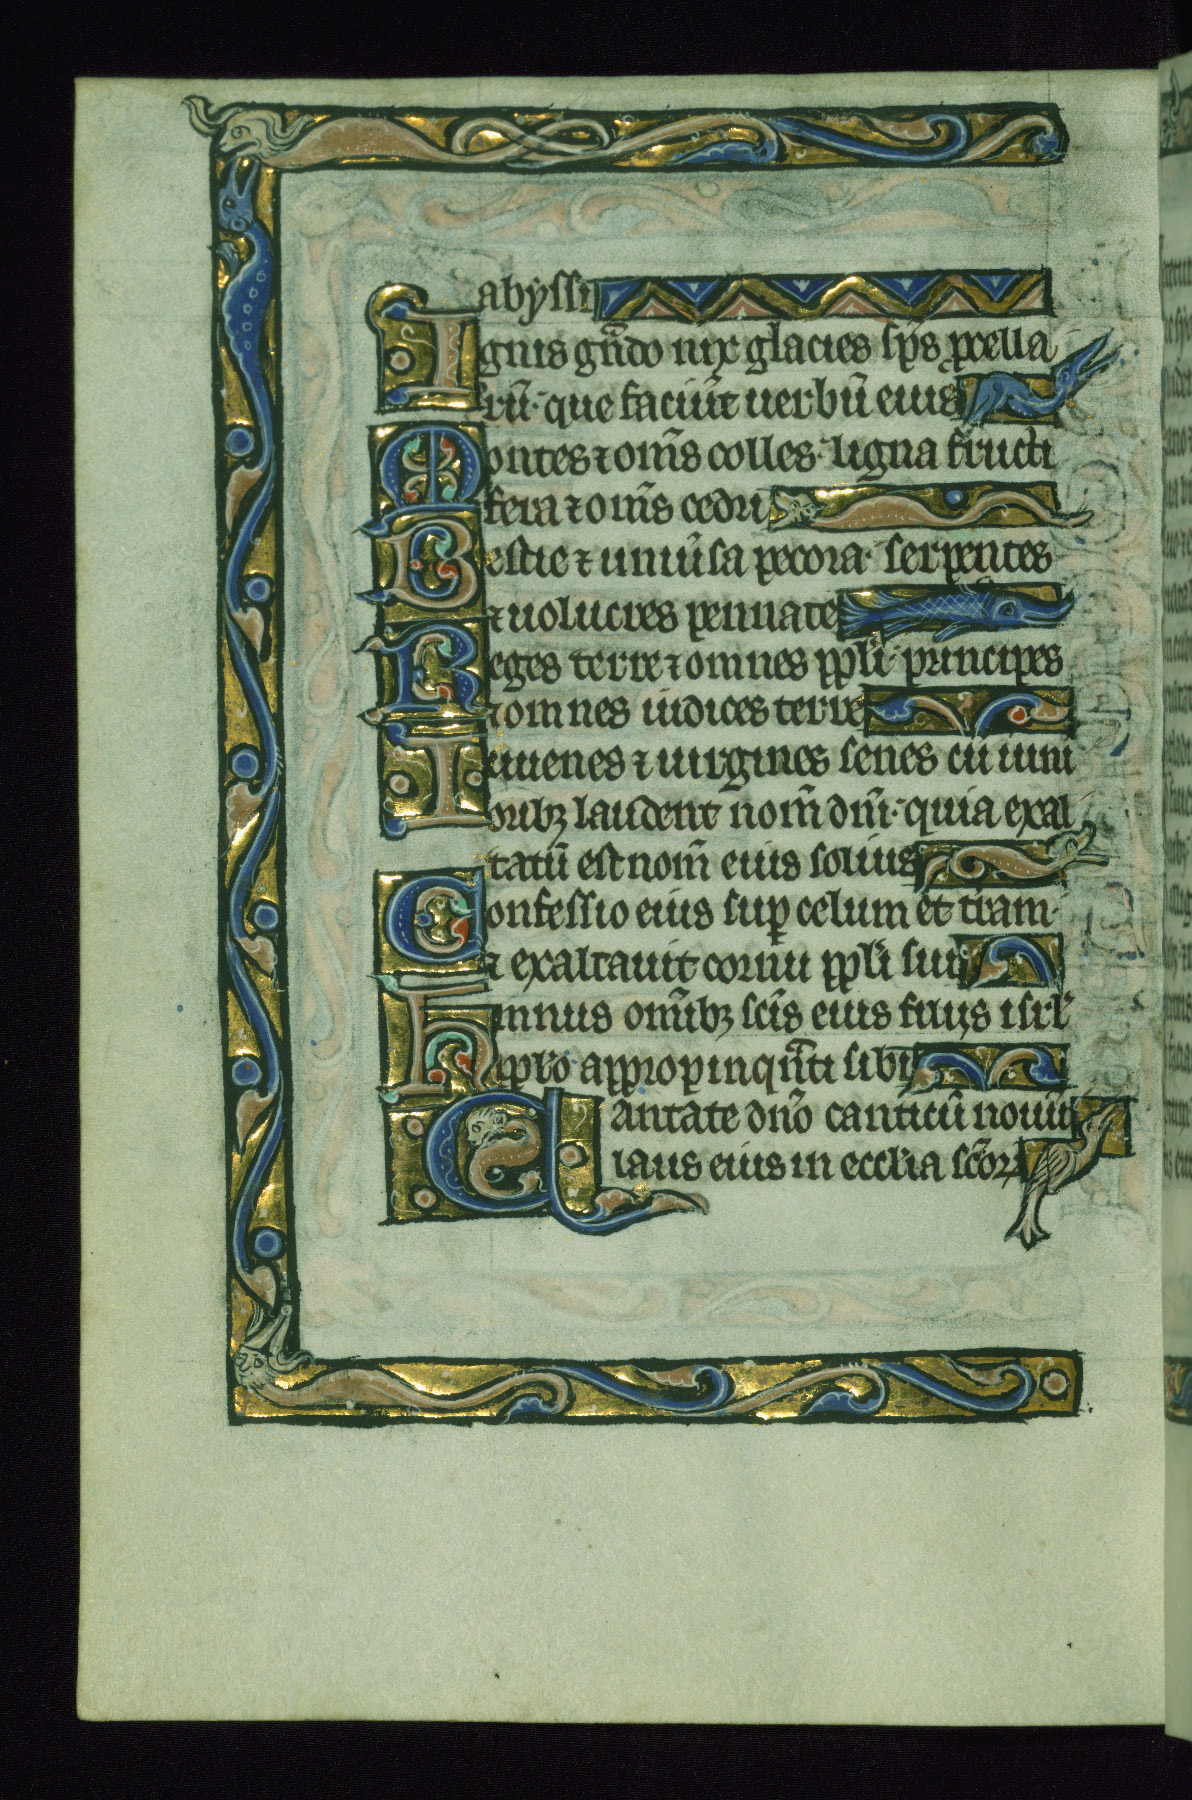 abyssi
Ignis gndo nix glacies sp̄s ꝓcella
rū· que faciūt uerbū eius
Montes ⁊ om̄s colles· ligna fructi
fera ⁊ om̄s cedri
Bestie ⁊ uniūsa pecora· serpentes
⁊ uolucres pennate
Reges terre ⁊ omnes ppl̄i· principes
⁊ omnes iudices terre
Iuuenes ⁊ uirgines senes cū iuni
oribꝫ laudent nom̄ dn̄i· quia exal
tatū est nom̄ eius solius
Confessio eius suꝑ celum et tram·
⁊ exaltauit cornu ppl̄i sui
Himnus om̄ibꝫ scīs eius filijs isrl̄
ppl̄o appropinqnti sibi
Cantate dn̄o canticū nouū
laus eius in eccl̄ia sc̄oꝝ